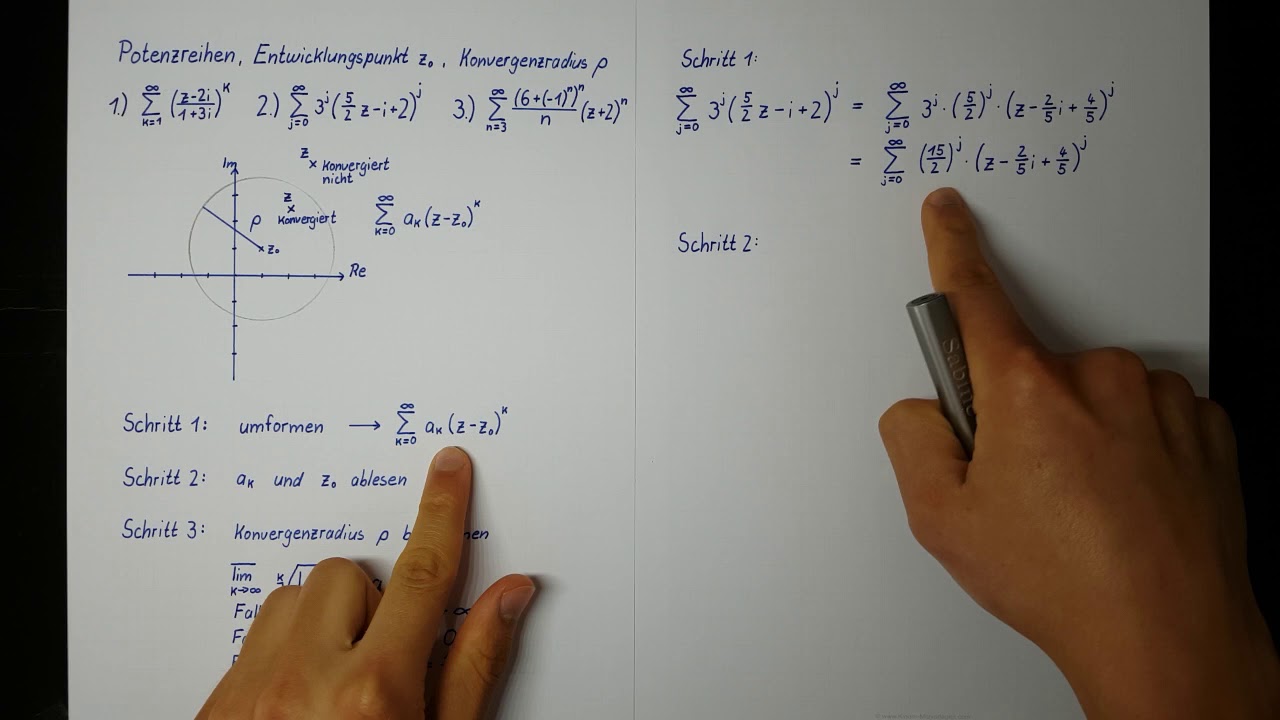 Potenzreihen, Entwicklungspunkt z₀, Konvergenzradius ρ
1.) ∑_{k=1}^{∞} ((z-2i)/(1+3i))^k 2.) ∑_{j=0}^{∞} 3^j (5/2 z-i+2)^j 3.) ∑_{n=3}^{∞} (6+(-1)^n)^n/n (z+2)^n
Im
z
× Konvergiert
nicht
z
× Konvergiert
ρ
z₀
Re
∑_{k=0}^{∞} a_k (z-z₀)^k
Schritt 1: umformen → ∑_{k=0}^{∞} a_k (z-z₀)^k
Schritt 2: a_k und z₀ ablesen
Schritt 3: Konvergenzradius ρ
lim k→∞
Schritt 1:
∑_{j=0}^{∞} 3^j (5/2 z-i+2)^j = ∑_{j=0}^{∞} 3^j · (5/2)^j · (z - 2/5 i + 4/5)^j
= ∑_{j=0}^{∞} (15/2)^j · (z - 2/5 i + 4/5)^j
Schritt 2: